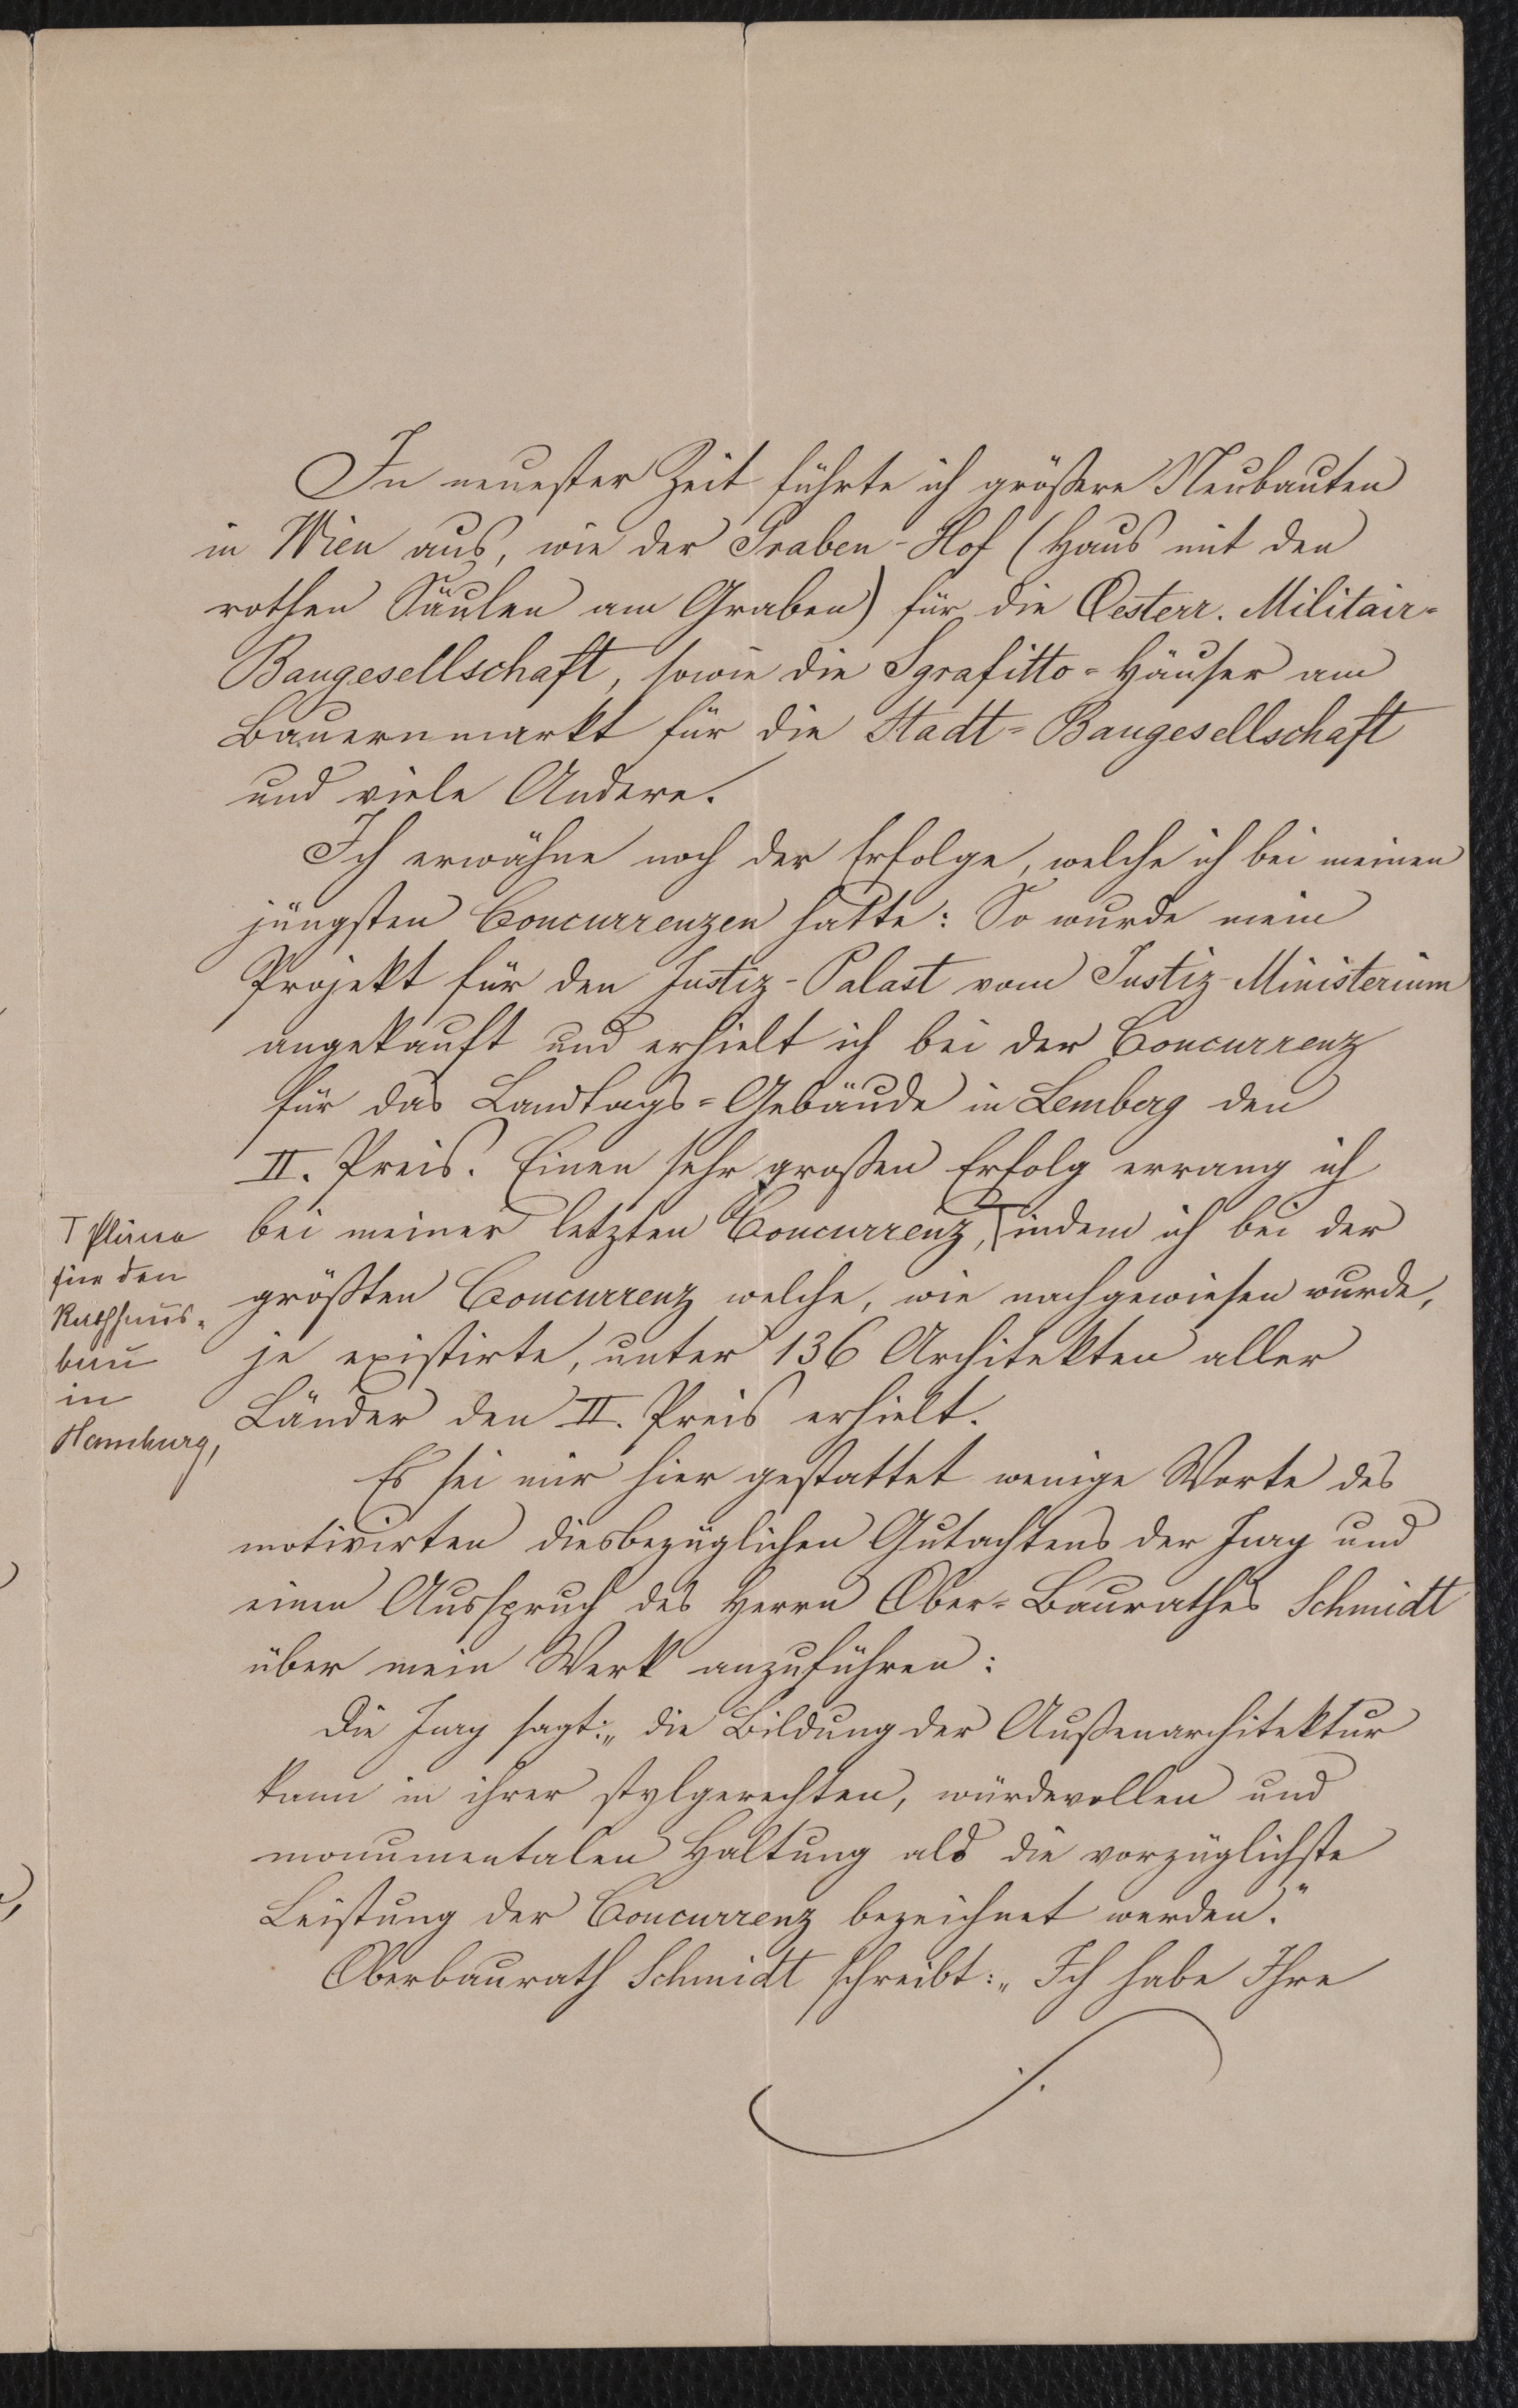 In neuester Zeit führte ich größere Neubauten
in Wien aus, wie der Graben-Hof (Haus mit den
rothen Säulen am Graben) für die Oesterr. Militair-
Baugesellschaft, sowie die Sgrafitto-Häuser am
Bauernmarkt für die Stadt-Baugesellschaft
und viele Andere.
Ich erwähne noch der Erfolge, welche ich bei meinen
jüngsten Concurrenzen hatte: So wurde mein
Projekt für den Justiz-Palast vom Justiz-Ministerium
angekauft und erhielt ich bei der Concurrenz
für das Landtags-Gebäude in Lemberg den
II. Preis. Einen sehr großen Erfolg errang ich
bei meiner letzten Concurrenz, indem ich bei der
größten Concurrenz welche, wie nachgewiesen wurde,
je existirte, unter 136 Architekten aller
Länder den II. Preis erhielt.
Pläne
für den
Rathhaus-
bau
in
Hamburg,
Es sei mir hier gestattet wenige Worte des
motivirten diesbezüglichen Gutachtens der Jury und
einen Ausspruch des Herrn Ober-Baurathes Schmidt
über mein Werk anzuführen:
Die Jury sagt: „die Bildung der Außenarchitektur
kann in ihrer stylgerechten, würdevollen und
monumentalen Haltung als die vorzüglichste
Leistung der Concurrenz bezeichnet werden."
Oberbaurath Schmidt schreibt: „Ich habe Ihre
./.